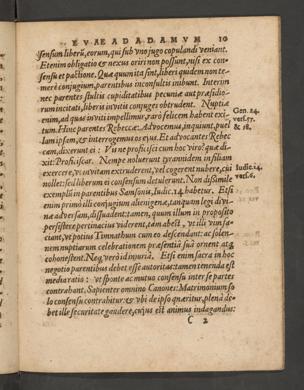 EVAE AD ADAMVM 10
sensum liberū, eorum, qui sub vno jugo copulandi veniant.
Etenim obligatio & nexus oriri non possunt, nisi ex con-
sensu et pactione. Quæ quum ita sint, liberi quidem non te-
merè conjugium, parentibus inconsultis inibunt. Interim
nec parentes stultis cupiditatibus pecuniæ aut præsidio-
rum incitati, liberis invitis conjuges obtrudent. Nuptiæ
enim, ad quas inviti impellimur, rarò felicem habent exi-
tum. Hinc parentes Rebeccæ: Advocemus, inquiunt, puel
lam ipsam, & interrogemus os ejus. Et advocantes Rebec
cam, dixerunt ei: Vis ne proficisci cum hoc viro? quæ di-
xit: Proficiscar. Nempe noluerunt tyrannidem in filiam
exercere, vi invitam extruderent, vel cogerent nubere, cui
nollet: sed liberum ei consensum detulerunt. Non dißimile
exemplū in parentibus Samsonis, Iudic. 14. habetur. Etsi
enim primò illi conjugium alienigenæ, tanquam legi divi-
næ adversum, dissuadent: tamen, quum illum in proposito
persistere pertinacius viderent, tam abest, vt illi vim fa-
ciant, vt potius Timnathum cum eo descendant: ac solen-
nem nuptiarum celebrationem præsentiâ suâ ornent atq́;
cohonestent. Neq; verò id injuriâ. Etsi enim sacra in hoc
negotio parentibus debet esse autoritas: tamen tenenda est
media ratio: vt sponte ac mutuo consensu inter se partes
contrahant. Sapienter omnino Canones: Matrimonium so
lo consensu contrahitur: & vbi de ipso quæritur, plenâ de-
bet ille securitate gaudere, cujus est animus indagandus:
C 2
Gen. 24.
vers. 57.
& 58.
Iudic. 14.
vers. 5.